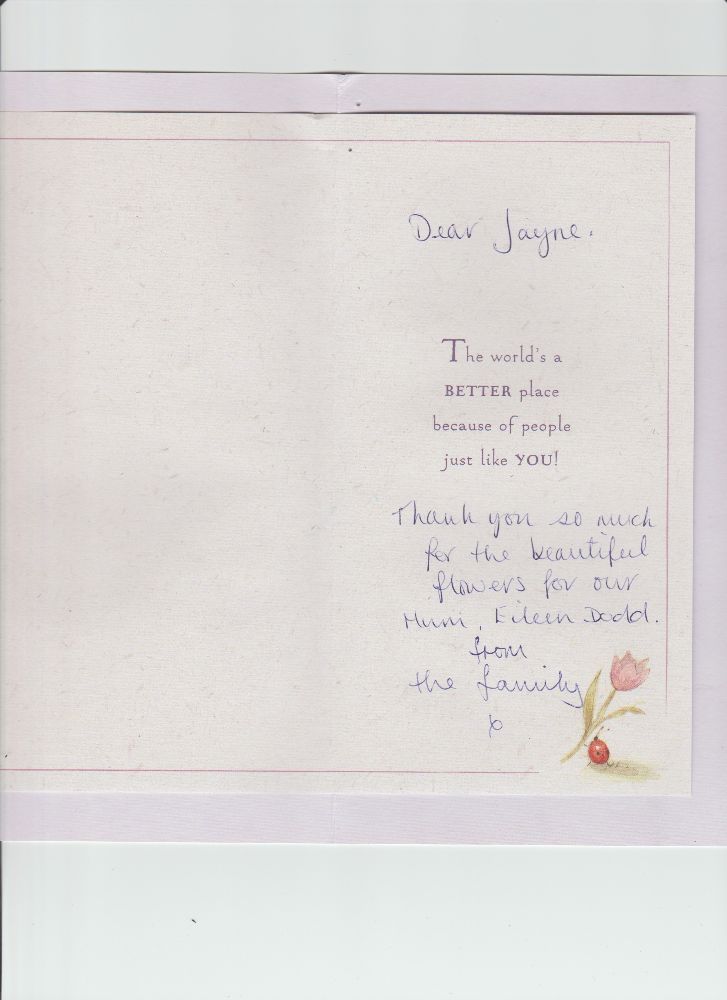 Dear Jayne.
The world's a
BETTER place
because of people
just like YOU!
Thank you so much
for the beautiful
flowers for our
Mum, Eileen Dodd.
from
the family
x